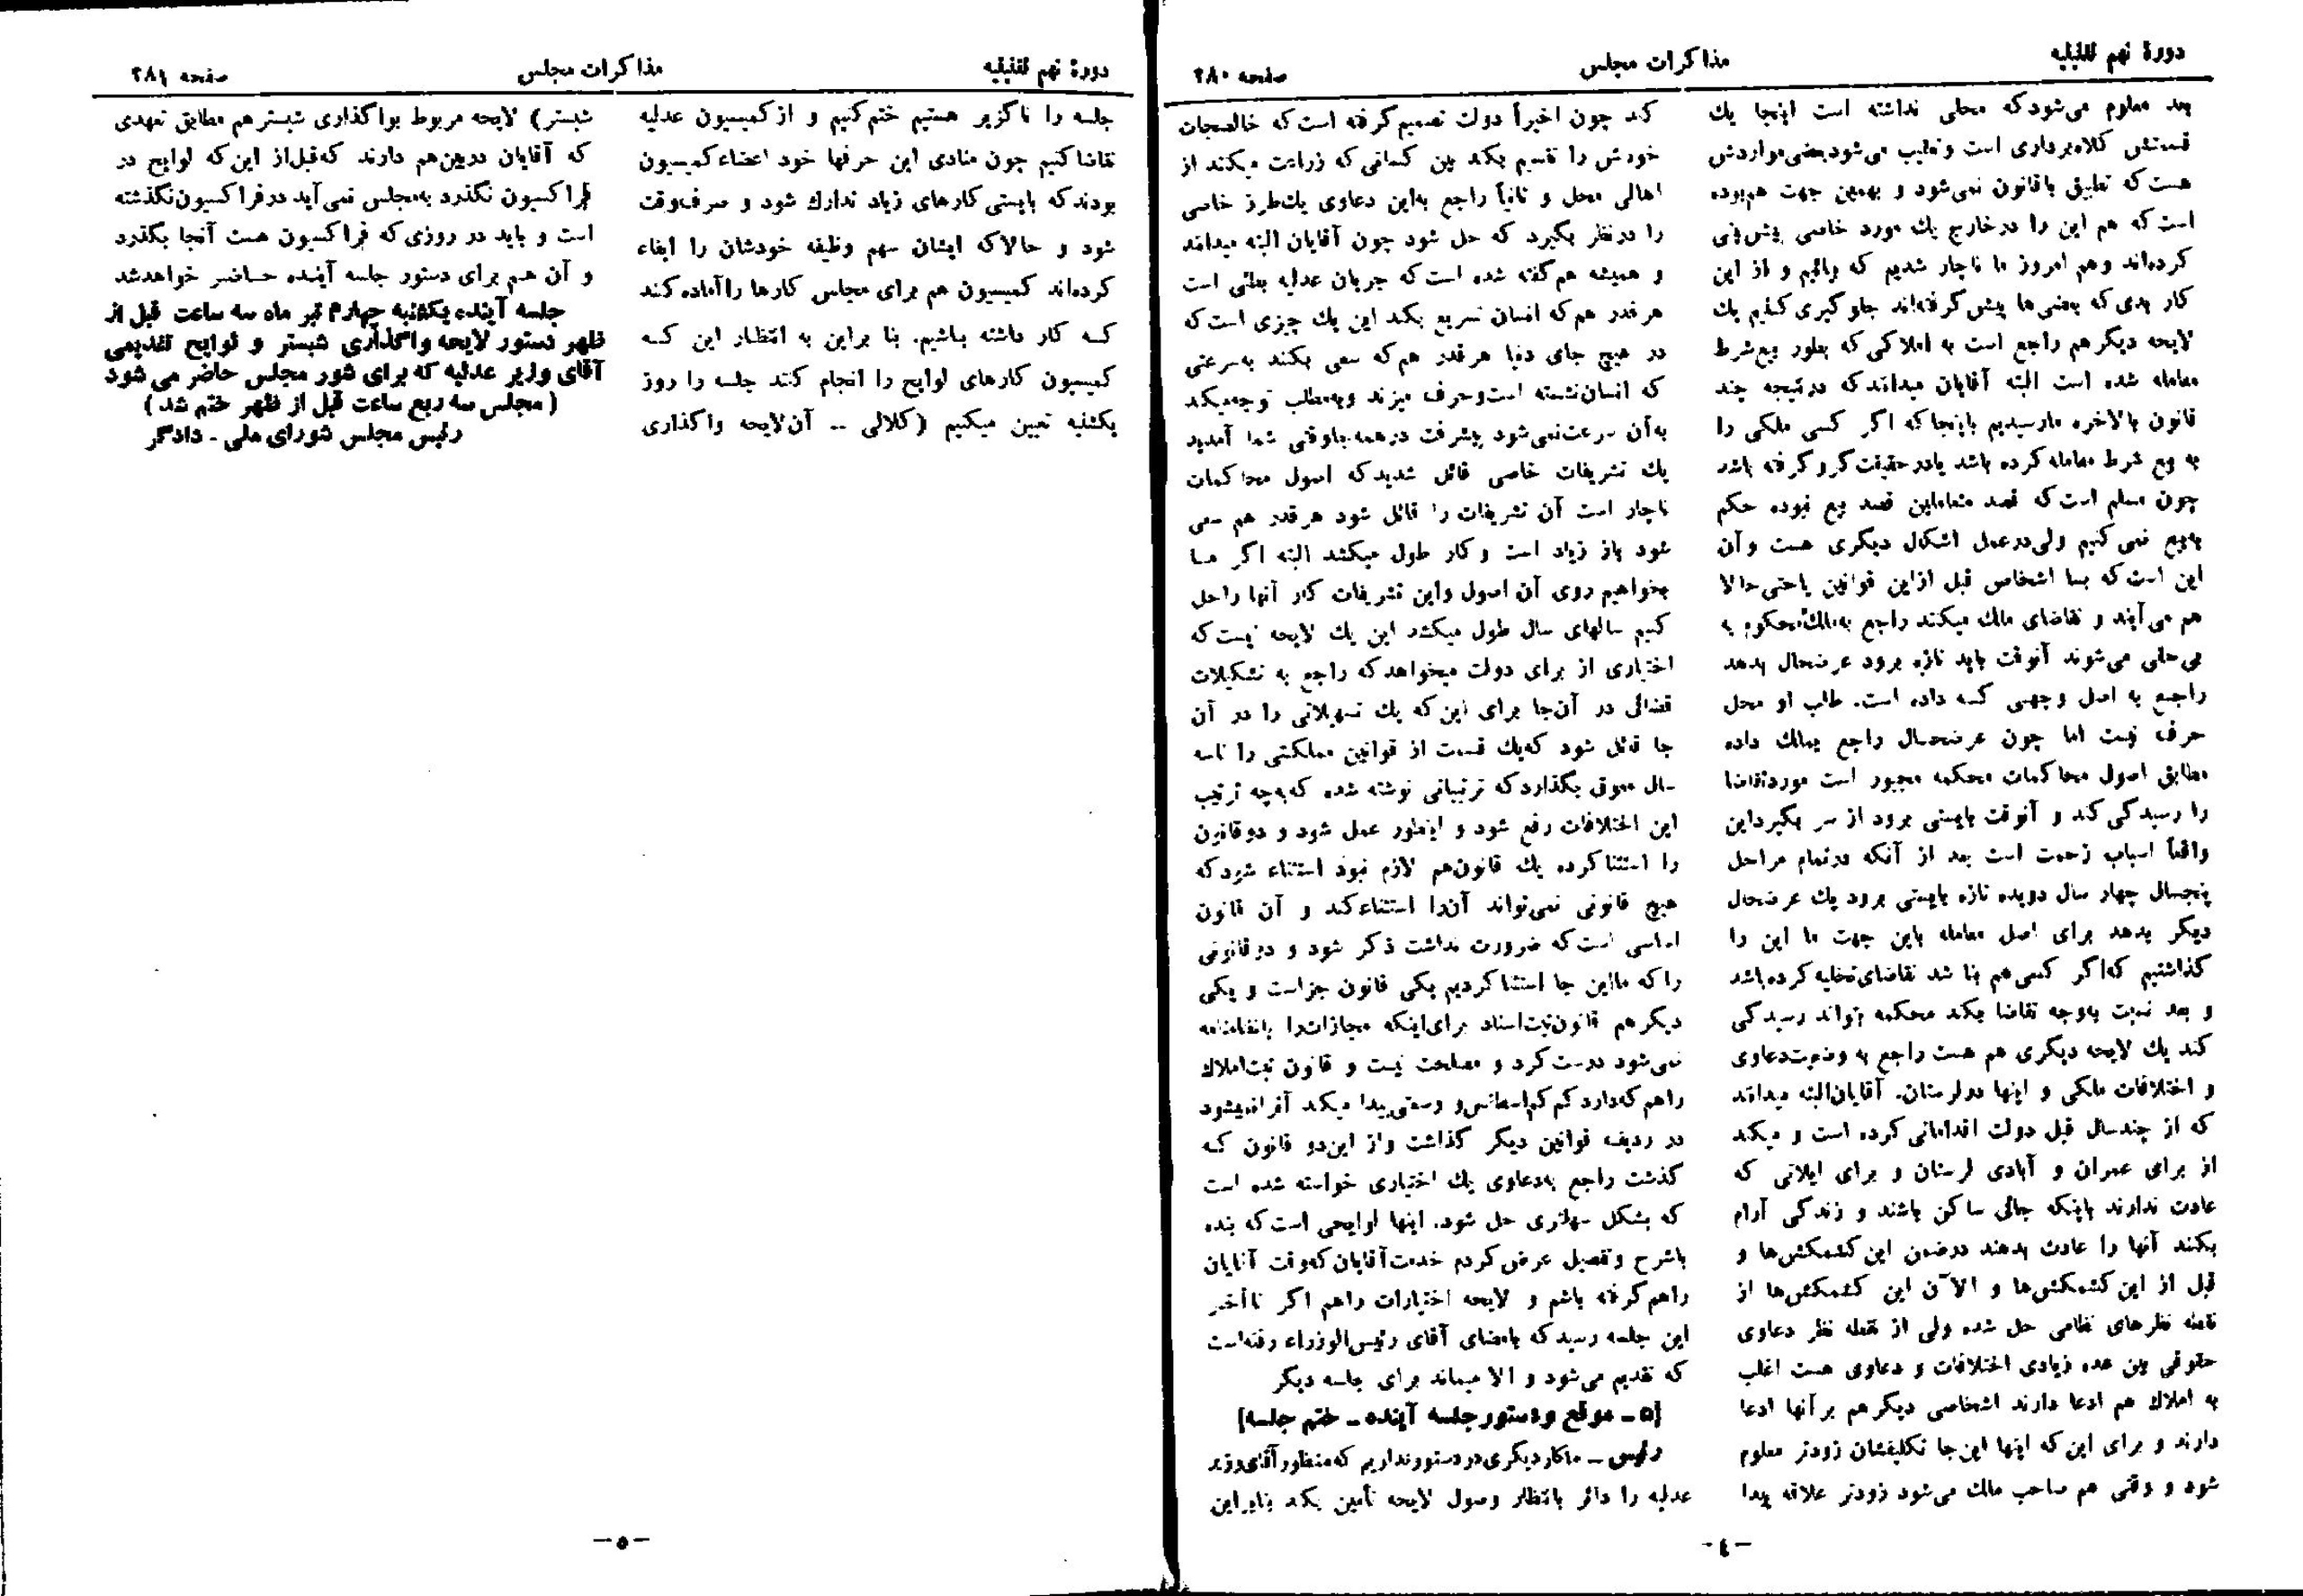 دورهٔ نهم تقنینیه
مذاکرات مجلس
صفحه ۲۸۰
بعد معلوم می‌شود که محلی نداشته است اینجا یك
قسمتش کلاه‌برداری است و تعلیب می‌شود بعضی مواردش
هست که تطبیق باقانون نمی‌شود و بهمین جهت هم بوده
است که هم این را در خارج یك مورد خاصی پیش‌بینی
کرده‌اند و هم امروز ما ناچار شدیم که بیائیم و از این
کار بدی که بعضی‌ها پیش گرفته‌اند جلوگیری کنیم یك
لایحه دیگر هم راجع است به املاکی که بطور بیع شرط
معامله شده است البته آقایان میدانند که در نتیجه چند
قانون بالاخره ما رسیدیم باینجا که اگر کسی ملکی را
به بیع شرط معامله کرده باشد یا در حقیقت گرو گرفته باشد
چون مسلم است که قصد متعاملین قصد بیع نبوده حکم
به بیع نمی‌کنیم ولی در عمل اشکال دیگری هست و آن
این است که بسا اشخاص قبل از این قوانین یا حتی حالا
هم می‌آیند و تقاضای ملك میکنند راجع به ملك محکوم به
بی‌حقی می‌شوند آنوقت باید تازه برود عرضحال بدهد
راجع به اصل وجهی کسه داده است. طلب او محل
حرف نیست اما چون عرضحال راجع بملك داده
مطابق اصول محاکمات محکمه مجبور است مورد تقاضا
را رسیدگی کند و آنوقت بایستی برود از سر بگیرد این
واقعاً اسباب زحمت است بعد از آنکه در تمام مراحل
پنجسال چهار سال دویده تازه بایستی برود یك عرضحال
دیگر بدهد برای اصل معامله باین جهت ما این را
گذاشتیم که اگر کسی هم بنا شد تقاضای تخلیه کرده باشد
و بعد نسبت به وجه تقاضا بکند محکمه بتواند رسیدگی
کند یك لایحه دیگری هم هست راجع به وضعیت دعاوی
و اختلافات ملکی و اینها در لرستان. آقایان البته میدانند
که از چند سال قبل دولت اقداماتی کرده است و میکند
از برای عمران و آبادی لرستان و برای ایلاتی که
عادت ندارند باینکه جائی ساکن باشند و زندگی آرام
بکنند آنها را عادت بدهند در ضمن این کشمکش‌ها و
قبل از این کشمکش‌ها و الآن این کشمکش‌ها از
نقطه نظرهای نظامی حل شده ولی از نقطه نظر دعاوی
حقوقی بین عده زیادی اختلافات و دعاوی هست اغلب
به املاك هم ادعا دارند اشخاصی دیگر هم بر آنها ادعا
دارند و برای این که اینها این‌جا تکلیفشان زودتر معلوم
شود و وقتی هم صاحب ملك می‌شود زودتر علاقه پیدا
کند چون اخیراً دولت تصمیم گرفته است که خالصجات
خودش را تقسیم بکند بین کسانی که زراعت میکنند از
اهالی محل و ثانیاً راجع به این دعاوی یك طرز خاصی
را در نظر بگیرد که حل شود چون آقایان البته میدانند
و همیشه هم گفته شده است که جریان عدلیه بطئی است
هر قدر هم که انسان تسریع بکند این یك چیزی است که
در هیچ جای دنیا هر قدر هم که سعی بکنند به سرعتی
که انسان نشسته است و حرف میزند و به مطلب توجه میکند
به آن سرعت نمی‌شود پیشرفت در همه جا وقتی شما آمدید
یك تشریفات خاصی قائل شدید که اصول محاکمات
ناچار است آن تشریفات را قائل شود هر قدر هم سعی
شود باز زیاد است و کار طول میکشد البته اگر مسا
بخواهیم روی آن اصول و این تشریفات کار آنها را حل
کنیم سالهای سال طول میکشد این یك لایحه نیست که
اختیاری از برای دولت میخواهد که راجع به تشکیلات
قضائی در آن‌جا برای این که یك تسهیلاتی را در آن
جا قائل شود که یك قسمت از قوانین مملکتی را تاسه
سال معوق بگذارد که ترتیباتی نوشته شده که به چه ترتیب
این اختلافات رفع شود و اینطور عمل شود و دو قانون
را استثنا کرده یك قانون هم لازم نبود استثناء شود که
هیچ قانونی نمی‌تواند آن را استثناء کند و آن قانون
اساسی است که ضرورت نداشت ذکر شود و دو قانونی
را که ما این جا استثنا کردیم یکی قانون جزاست و یکی
دیگر هم قانون ثبت اسناد برای اینکه مجازات را بانظامنامه
نمی‌شود درست کرد و مصلحت نیست و قانون ثبت املاك
را هم که دارد کم کم و وسعتی پیدا میکند آنرا نمیشود
در ردیف قوانین دیگر گذاشت و از این دو قانون کسه
گذشت راجع به دعاوی یك اختیاری خواسته شده است
که بشکل سهلتری حل شود. اینها لوایحی است که بنده
باشرح و تفصیل عرض کردم خدمت آقایان که وقت آقایان
را هم گرفته باشم و لایحه اختیارات را هم اگر تا آخر
این جلسه رسید که بامضای آقای رئیس‌الوزراء رفته است
که تقدیم می‌شود و الا میماند برای جلسه دیگر
[۵ ـ موقع و دستور جلسه آینده ـ ختم جلسه]
رئیس ـ ما کار دیگری در دستور نداریم که منظور آقای وزیر
عدلیه را دائر بانتظار وصول لایحه تأمین بکند بنابراین
ـ ٤ ـ
دورهٔ نهم تقنینیه
مذاکرات مجلس
صفحه ۲۸۱
جلسه را ناگزیر هستیم ختم کنیم و از کمیسیون عدلیه
تقاضا کنیم چون منادی این حرفها خود اعضاء کمیسیون
بودند که بایستی کارهای زیاد تدارك شود و صرف وقت
شود و حالا که ایشان سهم وظیفه خودشان را ایفاء
کرده‌اند کمیسیون هم برای مجلس کارها را آماده کند
کسه کار داشته باشیم. بنا براین به انتظار این کسه
کمیسیون کارهای لوایح را انجام کند جلسه را روز
یکشنبه تعیین میکنیم (کلالی ـ آن لایحه واگذاری
شبستر) لایحه مربوط بواگذاری شبستر هم مطابق تعهدی
که آقایان در بین هم دارند که قبل از این که لوایح در
فراکسیون نگذرد به مجلس نمی‌آید در فراکسیون نگذشته
است و باید در روزی که فراکسیون هست آنجا بگذرد
و آن هم برای دستور جلسه آینده حاضر خواهد شد
جلسه آینده یکشنبه چهارم تیر ماه سه ساعت قبل از
ظهر دستور لایحه واگذاری شبستر و لوایح تقدیمی
آقای وزیر عدلیه که برای شور مجلس حاضر می شود
(مجلس سه ربع ساعت قبل از ظهر ختم شد)
رئیس مجلس شورای ملی ـ دادگر
ـ ۵ ـ